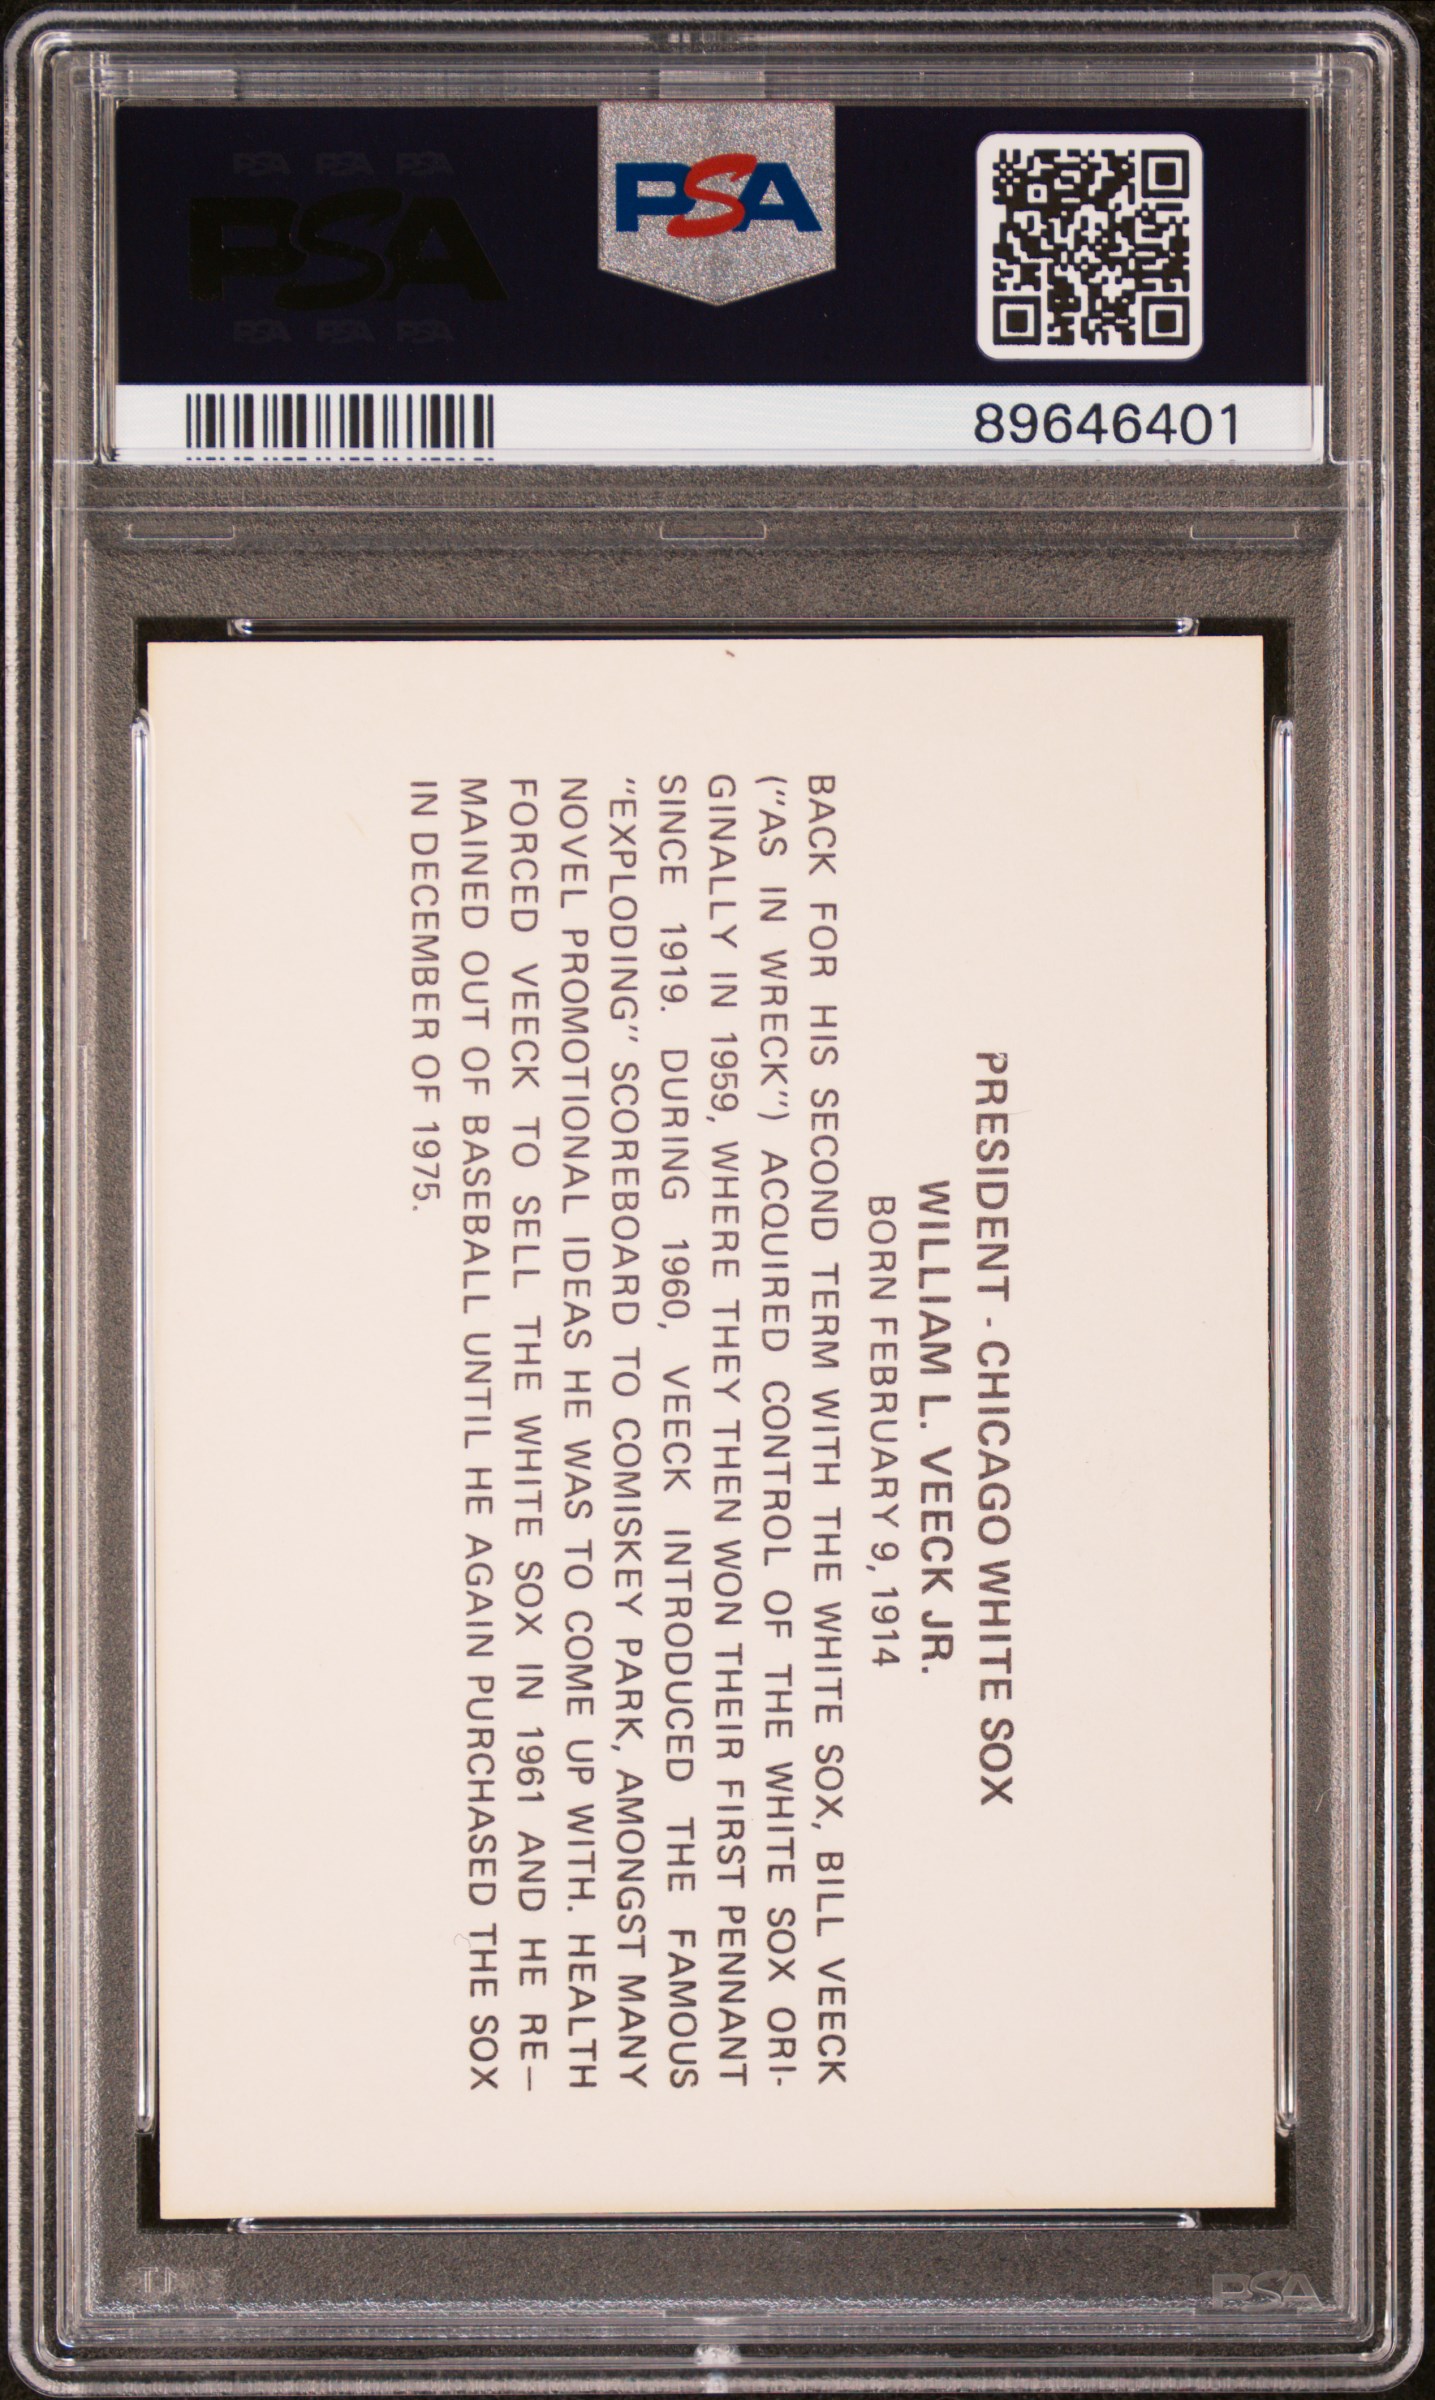 PSA PSA PSA
PSA
PSA PSA PSA
PSA
89646401
PRESIDENT - CHICAGO WHITE SOX
WILLIAM L. VEECK JR.
BORN FEBRUARY 9, 1914
BACK FOR HIS SECOND TERM WITH THE WHITE SOX, BILL VEECK
("AS IN WRECK") ACQUIRED CONTROL OF THE WHITE SOX ORI-
GINALLY IN 1959, WHERE THEY THEN WON THEIR FIRST PENNANT
SINCE 1919. DURING 1960, VEECK INTRODUCED THE FAMOUS
"EXPLODING" SCOREBOARD TO COMISKEY PARK, AMONGST MANY
NOVEL PROMOTIONAL IDEAS HE WAS TO COME UP WITH. HEALTH
FORCED VEECK TO SELL THE WHITE SOX IN 1961 AND HE RE—
MAINED OUT OF BASEBALL UNTIL HE AGAIN PURCHASED THE SOX
IN DECEMBER OF 1975.
PSA